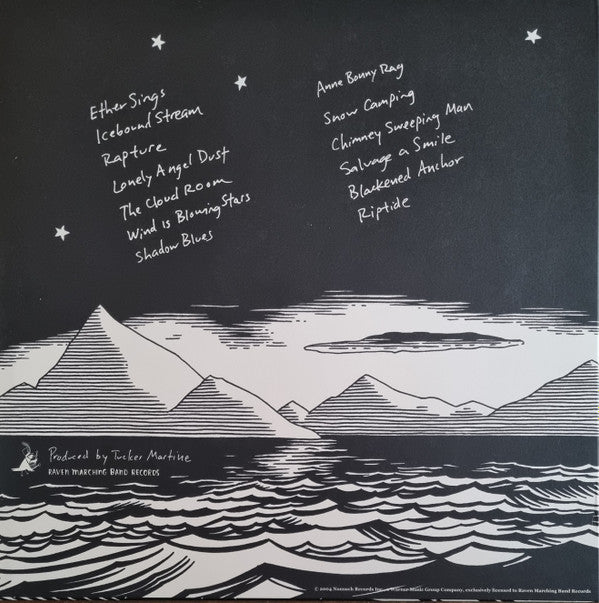 Ether Sings
Icebound Stream
Rapture
Lonely Angel Dust
The Cloud Room
Wind is Blowing Stars
Shadow Blues
Anne Bonny Rag
Snow Camping
Chimney Sweeping Man
Salvage a Smile
Blackened Anchor
Riptide
Produced by Tucker Martine
RAVEN MARCHING BAND RECORDS
© 2004 Nonesuch Records Inc., a Warner Music Group Company, exclusively licensed to Raven Marching Band Records